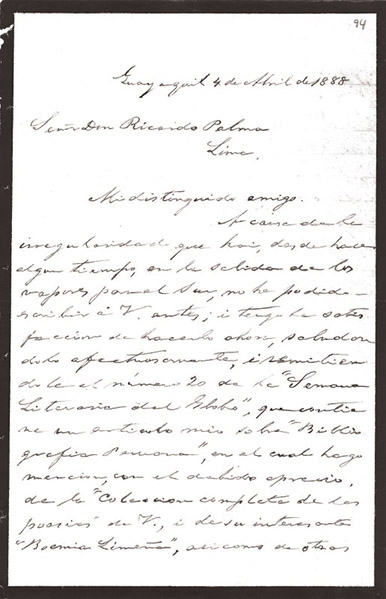 94
Guayaquil 4 de Abril de 1888
Señor Don Ricardo Palma
Lima.
Mi distinguido amigo.
A causa de la
irregularidad que hai, desde hace
algun tiempo, en la salida de los
vapores para el Sur, no he podido
escribir á V. antes; i tengo la satis
faccion de hacerlo ahora, saludan
dolo afectuosamente, i remitien
dole el número 20 de la "Semana
Literaria del Globo", que contie
ne un articulo mio sobre "Biblio
grafia Peruana", en el cual hago
mencion, con el debido aprecio,
de la "Coleccion completa de las
poesias" de V., i de su interesante
"Boemia Limeña", asi como de otras